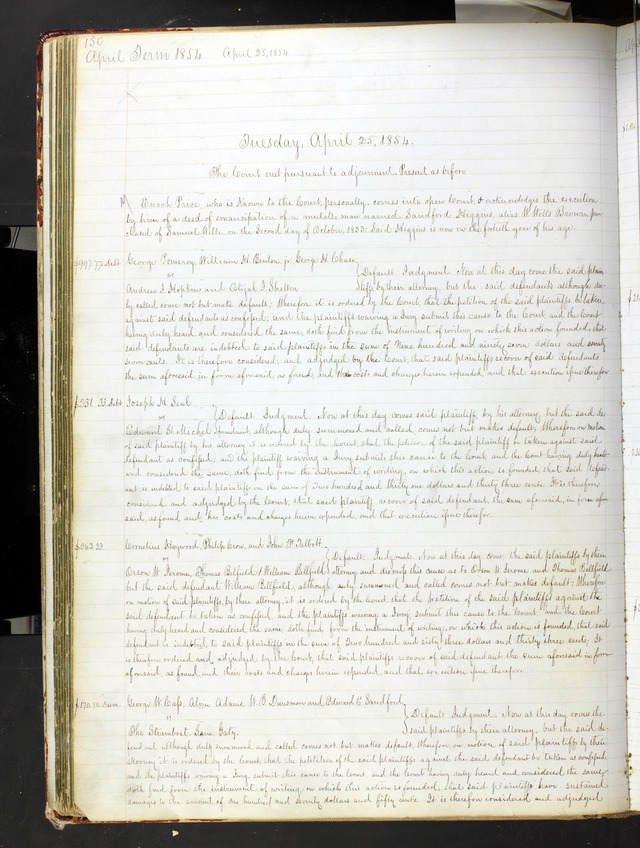 150
April Term 1854 April 25, 1854
Tuesday, April 25, 1854.
The Court met pursuant to adjournment. Present as before
Enoch Price, who is known to the Court, personally comes into open Court, & acknowledges the execution
by him of a deed of emancipation of a mulatto man named Sandford Higgins, alias W. Wells Brown, pur
chased of Samuel Wille, on the Second day of October, 1833; Said Higgins is now in the fortieth year of his age.
$997.77 Debt George Pomeroy, William H. Benton, jr George H. Chase
vs Default Judgment. Now at this day come the said plain-
Andrew J Hopkins and Elijah J Shelton tiffs by their attorney, but the said defendants although du-
ly called come not but make default; Wherefore it is ordered by the Court, that the petition of the said plaintiffs be taken
against said defendants as confessed; and the plaintiffs waiving a Jury submit this cause to the Court and the Court
having duly heard and considered the same, doth find from the instrument of writing on which this action is founded, that
said defendants are indebted to said plaintiffs in the sum of Nine hundred and ninety seven dollars and seventy
seven cents. It is therefore considered, and adjudged by the Court, that said plaintiffs recover of said defendants
the sum aforesaid in form aforesaid, as found, and their costs and charges herein expended, and that execution issue therefor
$231.33 Debt Joseph H. Seal
vs Default Judgment. Now at this day comes said plaintiff by his attorney, but the said de-
Edward G. Michel fendant, although duly summoned and called, comes not but makes default; Wherefore on motion
of said plaintiff by his attorney it is ordered by the Court, that the petition of the said plaintiff be taken against said
defendant as confessed, and the plaintiff waiving a Jury submits this cause to the Court, and the Court having duly heard
and considered the same, doth find from the instrument of writing, on which this action is founded, that said defend-
ant is indebted to said plaintiff in the sum of Two hundred and thirty one dollars and thirty three cents. It is therefore
considered and adjudged by the Court, that said plaintiff recover of said defendant, the sum aforesaid, in form afore-
said, as found, and his costs and charges herein expended, and that execution issue therefor.
$263.33 Cornelius Haywood, Philip Crow, and John P. Talbott
vs Default, Judgment. Now at this day come the said plaintiffs by their
Orson W. Jerome, Thomas Bellfield & William Bellfield attorney and dismiss this cause as to Orson W. Jerome and Thomas Bellfield
but the said defendant William Bellfield, although duly summoned and called comes not but makes default; Wherefore
on motion of said plaintiffs, by their attorney, it is ordered by the Court, that the petition of the said plaintiffs against the
said defendant be taken as confessed and the plaintiffs waiving a Jury submit this cause to the Court and the Court
having duly heard and considered the same, doth find from the instrument of writing, on which this action is founded, that said
defendant is indebted to said plaintiffs in the sum of Two hundred and sixty three dollars and thirty three cents. It
is therefore ordered and adjudged by the Court, that said plaintiffs recover of said defendant the sum aforesaid in form
aforesaid, as found, and their costs and charges herein expended, and that execution issue therefor
$170.50 Dam. George W. Cass, Alvin Adams, W. B. Dinsmore and Edward S. Sandford,
vs Default Judgment. Now at this day comes the
The Steamboat Jane Gaty. said plaintiffs by their attorney, but the said de-
fendant although duly summoned and called comes not but makes default, therefore on motion of said plaintiffs by their
attorney it is ordered by the Court that the petition of the said plaintiffs against the said defendant be taken as confessed
and the plaintiffs waiving a Jury, submit this cause to the Court, and the Court having duly heard and considered the same
doth find from the instrument of writing, on which this action is founded, that said plaintiffs have sustained
damages to the amount of One hundred and seventy dollars and fifty cents. It is therefore considered and adjudged